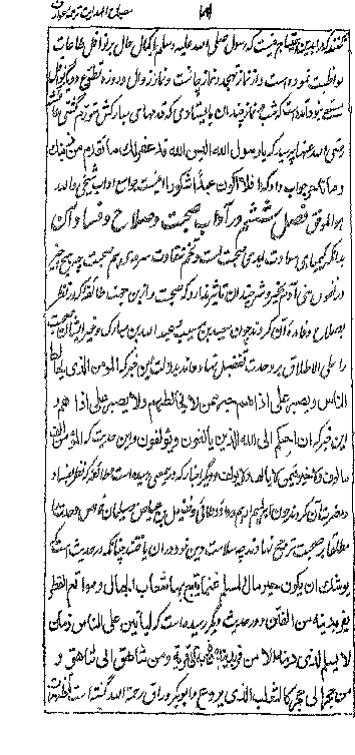 مصباح الهدایت ترجمه عوارف
گفته‌اند که رسول صلی الله علیه وسلم با کمال حال بر نوافل طاعات
مواظبت نموده است و از نماز تهجد و نماز چاشت و نماز زوال و روزه تطوع
نماز چندان بایستادی که قدمهای مبارکش متورم گشتی عائشه
رضی الله عنها پرسید که یا رسول الله الیس الله قد غفر لک ما تقدم من ذنبک
و ما تاخر جواب داد که افلا اکون عبدا شکورا اینست جوامع آداب شیخی والله
هو الموفق فصل ششم در آداب صحبت و صلاح و فساد آن
بدانکه کیمیای سعادت ابدی صحبت است و تخم شقاوت سرمدی هم صحبت چه هیچ چیز
در نفوس بنی آدم بخیر و شر چندان تاثیر ندارد که صحبت و از این جهت طائفه که در نظر
بصلاح و فائده آن کردند چون سعید بن مسیب و عبد الله بن مبارک و غیر ایشان صحبت
را علی الاطلاق بر وحدت تفضیل نهاده‌اند بدلالت این خبر که المومن الذی یخالط
الناس و یصبر علی اذاهم خیر من لا یخالطهم ولا یصبر علی اذاهم و
این خبر که ان احبکم الی الله الذین یالفون و یؤلفون و این حدیث که المؤمن
مالوف ولا خیر فیمن لا یالف ولا یؤلف و دیگر اخبار که درین معنی رسیده است و طائفه که نظر بفساد
و مضرت آن کردند چون ابراهیم ادهم و داود طائی و فضیل بن عیاض و سلیمان خواص وحدت را
مطلقا بر صحبت ترجیح نهادند چه سلامت دین خود در آن یافتند چنانکه در حدیث است که
یوشک ان یکون خیر مال المسلم غنما یتبع بها شعاب الجبال و مواقع القطر
یفر بدینه من الفتن و در حدیث دیگر رسیده است که لیاتین علی الناس زمان
لا یسلم الذی دین دینه الا من فر بدینه من قریة الی قریة و من شاهق الی شاهق و
من جحر الی جحر کالثعلب الذی یروغ و ابوبکر وراق رحمه الله گفته است